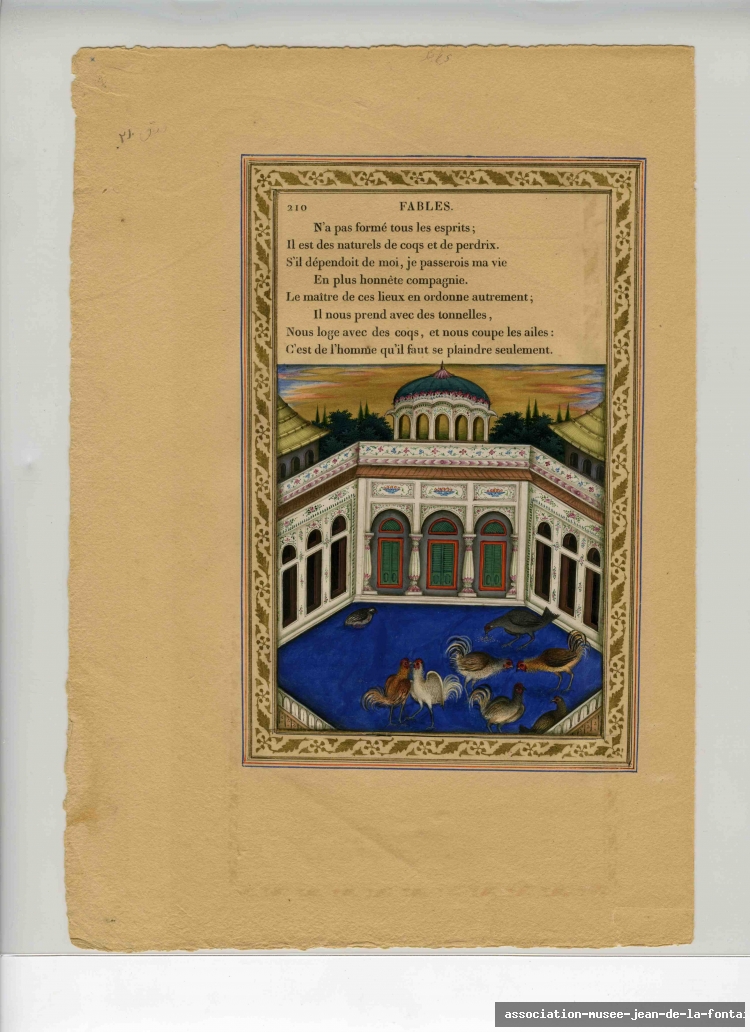 210 FABLES.
N'a pas formé tous les esprits ;
Il est des naturels de coqs et de perdrix.
S'il dépendoit de moi, je passerois ma vie
En plus honnête compagnie.
Le maître de ces lieux en ordonne autrement ;
Il nous prend avec des tonnelles,
Nous loge avec des coqs, et nous coupe les ailes :
C'est de l'homme qu'il faut se plaindre seulement.
association-musee-jean-de-la-fontai